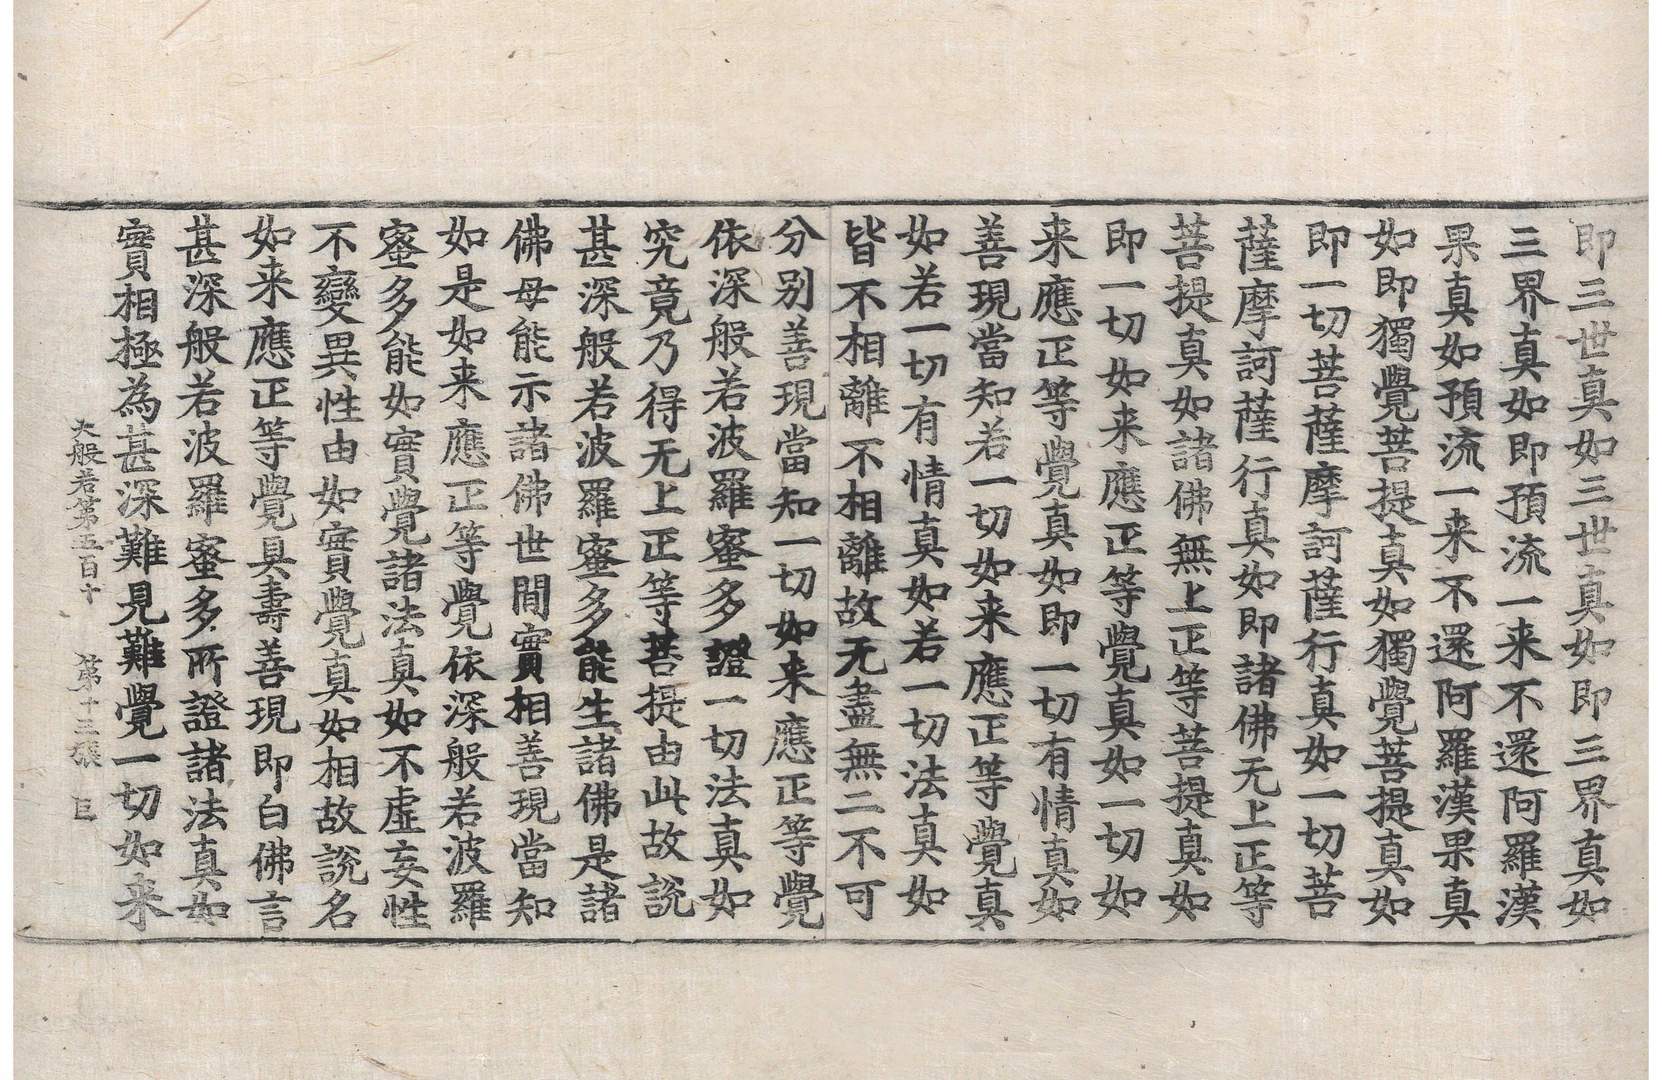 即三世真如三世真如即三界真如
三界真如即預流一来不還阿羅漢
果真如預流一来不還阿羅漢果真
如即獨覺菩提真如獨覺菩提真如
即一切菩薩摩訶薩行真如一切菩
薩摩訶薩行真如即諸佛无上正等
菩提真如諸佛無上正等菩提真如
即一切如来應正等覺真如一切如
来應正等覺真如即一切有情真如
善現當知若一切如来應正等覺真
如若一切有情真如若一切法真如
皆不相離不相離故无盡無二不可
分别善現當知一切如来應正等覺
依深般若波羅蜜多證一切法真如
究竟乃得无上正等菩提由此故說
甚深般若波羅蜜多能生諸佛是諸
佛母能示諸佛世間實相善現當知
如是如来應正等覺依深般若波羅
蜜多能如實覺諸法真如不虛妄性
不變異性由如實覺真如相故說名
如来應正等覺具壽善現即白佛言
甚深般若波羅蜜多所證諸法真如
實相極為甚深難見難覺一切如来
大般若第五百十 第十三張 巨